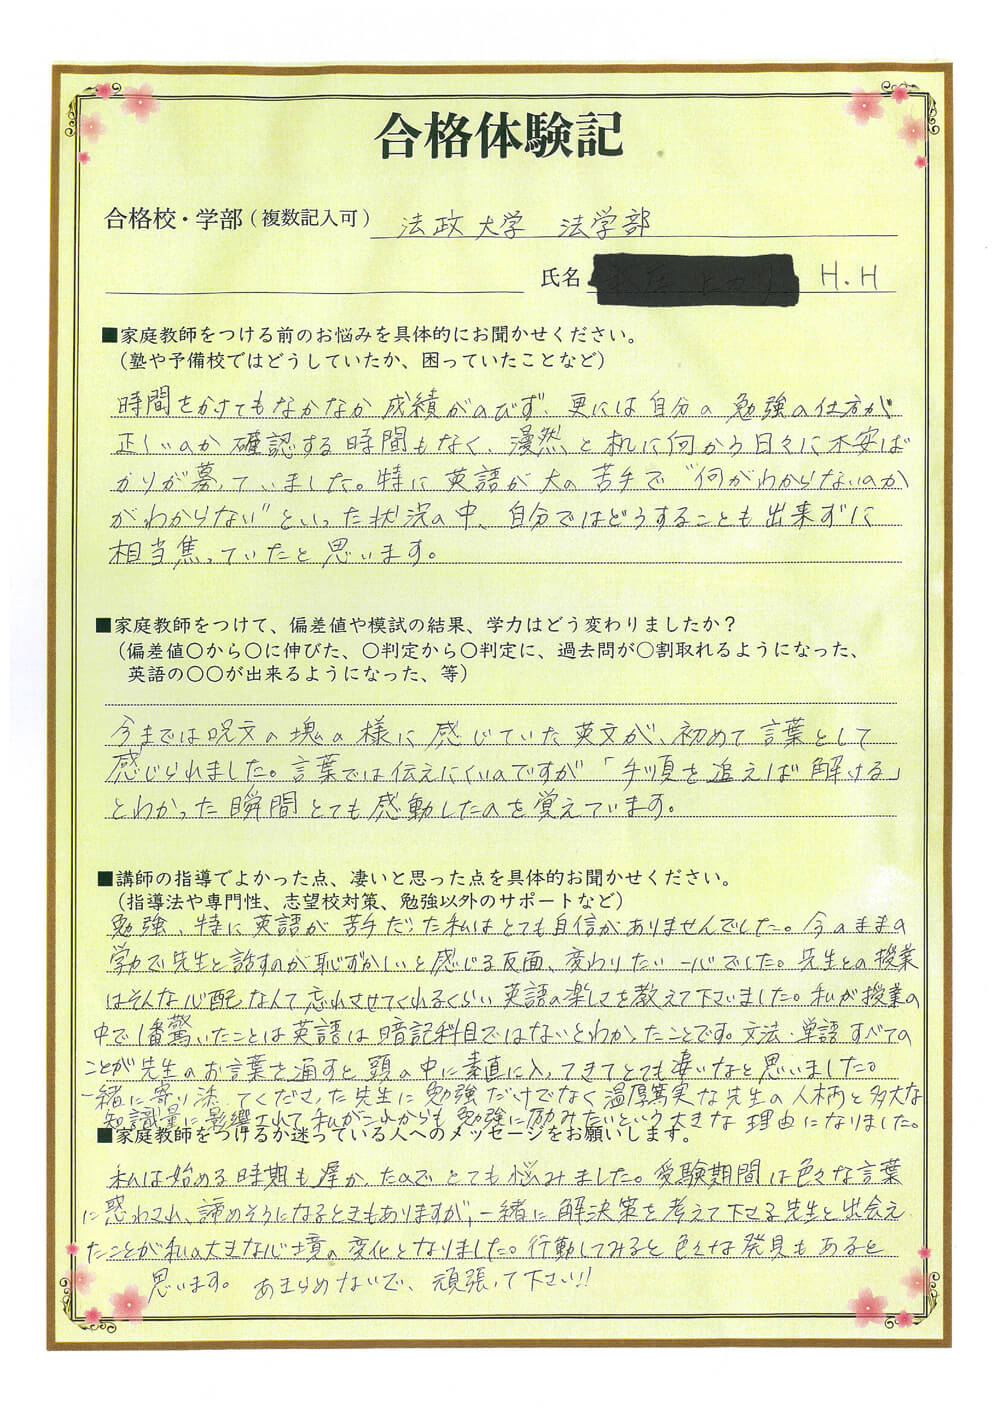 合格体験記
合格校・学部(複数記入可) 法政大学 法学部
氏名 H.H
■家庭教師をつける前のお悩みを具体的にお聞かせください。
(塾や予備校ではどうしていたか、困っていたことなど)
時間をかけてもなかなか成績がのびず、更には自分の勉強の仕方が
正しいのか確認する時間もなく、漫然と机に向かう日々に不安ば
かりが募っていました。特に英語が大の苦手で"何がわからないのか
がわからない"といった状況の中、自分ではどうすることも出来ずに
相当焦っていたと思います。
■家庭教師をつけて、偏差値や模試の結果、学力はどう変わりましたか?
(偏差値〇から〇に伸びた、〇判定から〇判定に、過去問が〇割取れるようになった、
英語の〇〇が出来るようになった、等)
今までは呪文の塊の様に感じていた英文が、初めて言葉として
感じられました。言葉では伝えにくいのですが「手順を追えば解ける」
とわかった瞬間とても感動したのを覚えています。
■講師の指導でよかった点、凄いと思った点を具体的お聞かせください。
(指導法や専門性、志望校対策、勉強以外のサポートなど)
勉強、特に英語が苦手だった私はとても自信がありませんでした。今のままの
学力で先生と話すのが恥ずかしいと感じる反面、変わりたい一心でした。先生との授業
はそんな心配なんて忘れさせてくれるくらい英語の楽しさを教えて下さいました。私が授業の
中で1番驚いたことは英語は暗記科目ではないとわかったことです。文法・単語すべての
ことが先生のお言葉を通すと頭の中に素直に入ってきてとても凄いなと思いました。
一緒に寄り添ってくださった先生に勉強だけでなく温厚篤実な先生の人柄と多大な
知識量に影響されて私がこれからも勉強に励みたいという大きな理由になりました。
■家庭教師をつけるか迷っている人へのメッセージをお願いします。
私は始める時期も遅かったのでとても悩みました。受験期間は色々な言葉
に惑わされ、諦めそうになるときもありますが、一緒に解決策を考えて下さる先生と出会え
たことが私の大きな心境の変化となりました。行動してみると色々な発見もあると
思います。あきらめないで、頑張って下さい!!